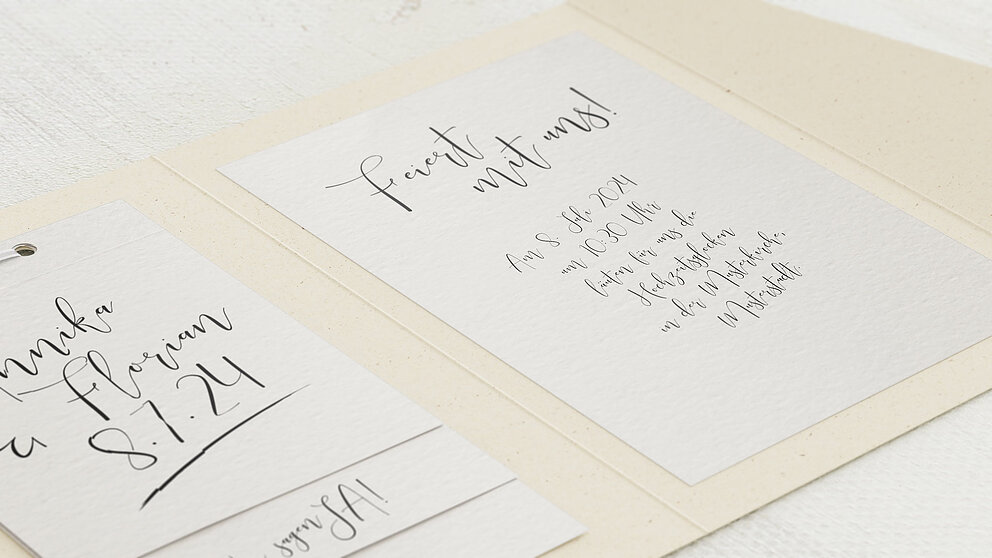 nnika
& Florian
8.7.24
sagen JA!
Feiert
mit uns!
Am 8. Juli 2024
um 10:30 Uhr
läuten für uns die
Hochzeitsglocken
in der Musterkirche,
Musterstadt.